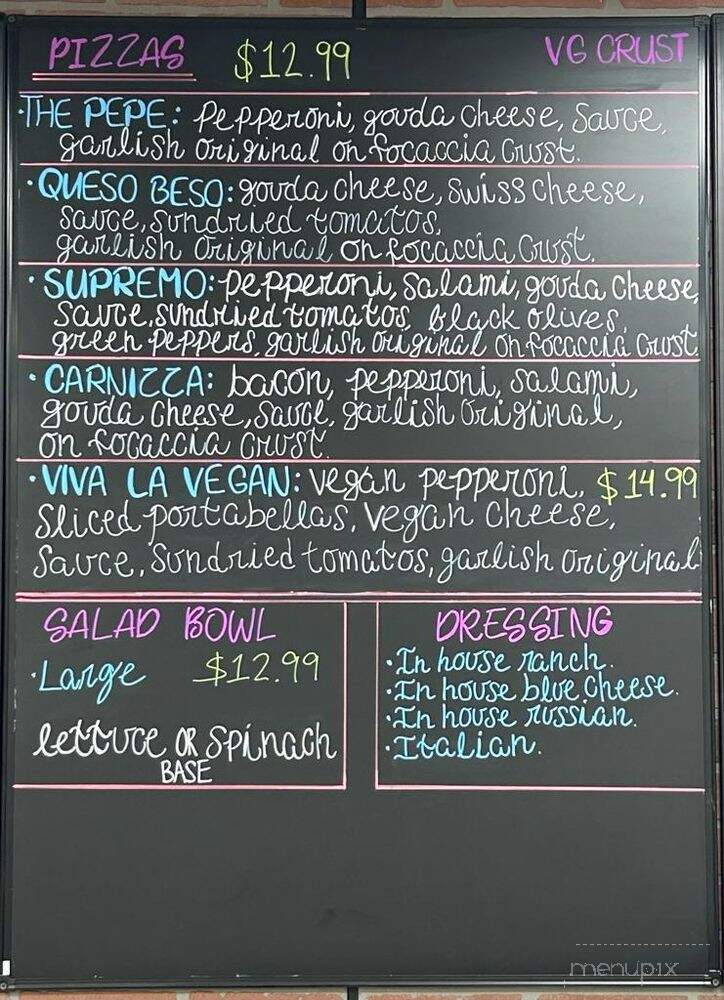 PIZZAS $12.99 VG CRUST
·THE PEPE: Pepperoni, gouda cheese, Sauce,
garlish original on focaccia crust.
·QUESO BESO: gouda cheese, swiss cheese,
sauce, sundried tomatos,
garlish original on focaccia Crust.
·SUPREMO: pepperoni, salami, gouda cheese,
sauce, sundried tomatos, black olives,
green peppers, garlish original on focaccia Crust.
·CARNIZZA: bacon, pepperoni, salami,
gouda cheese, sauce, garlish original,
on focaccia crust.
·VIVA LA VEGAN: vegan pepperoni, $14.99
sliced portabellas, vegan cheese,
sauce, sundried tomatos, garlish original
SALAD BOWL
·Large $12.99
lettuce OR spinach
BASE
DRESSING
·In house ranch.
·In house blue cheese.
·In house russian.
·Italian.
menupix